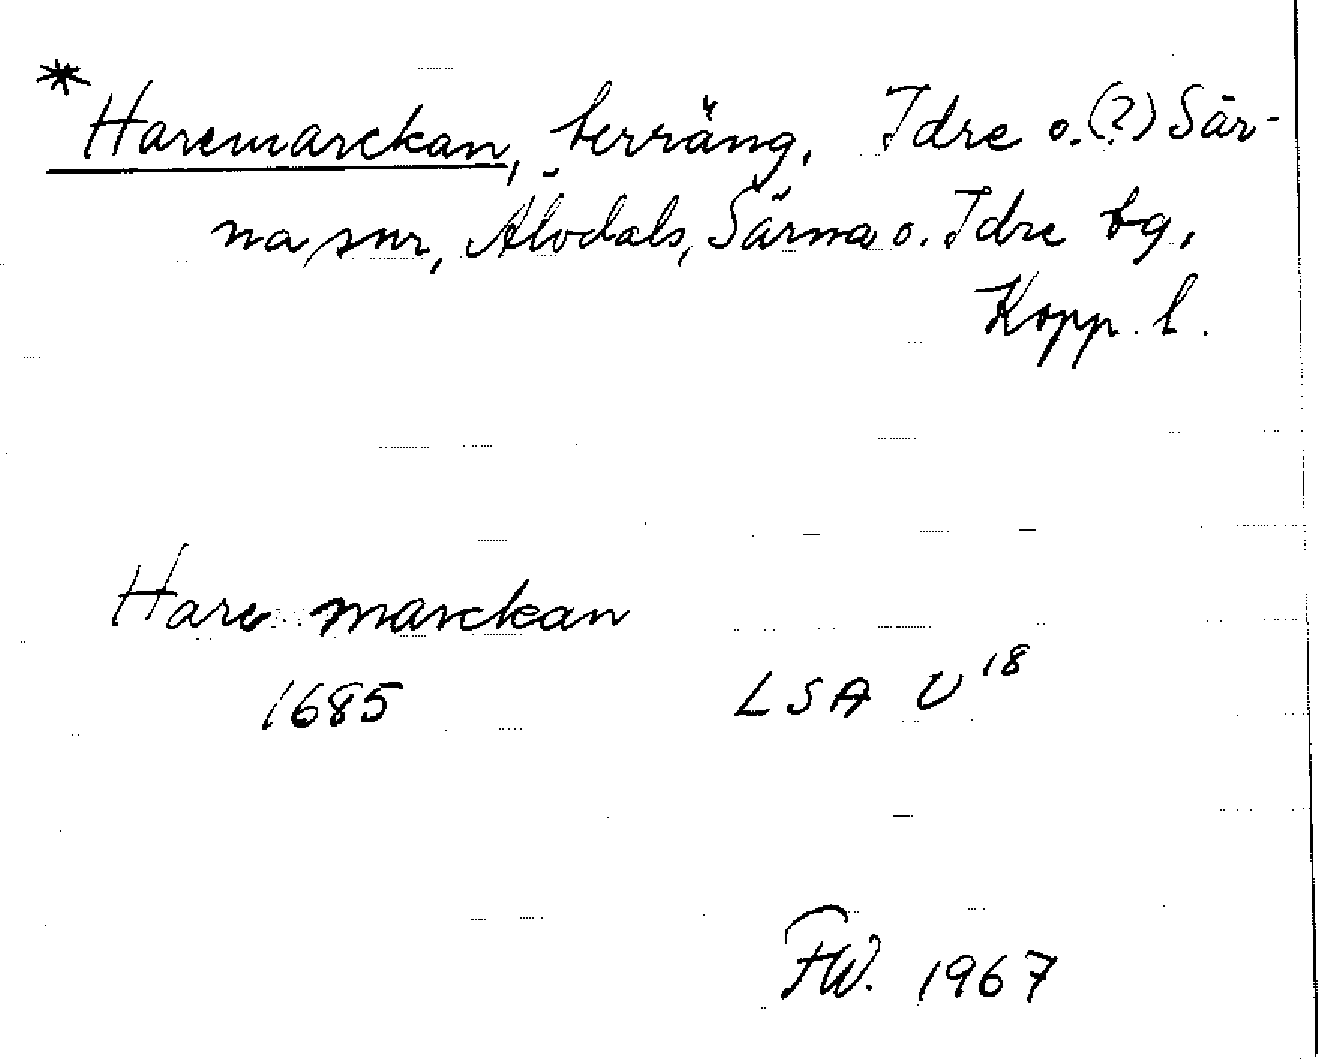 * Haremarckan, terräng, Idre o. (?) Sär-
na snr, Älvdals, Särna o. Idre tg,
Kopp. l.
Hare marckan
1685 LSA U 18
FW. 1967